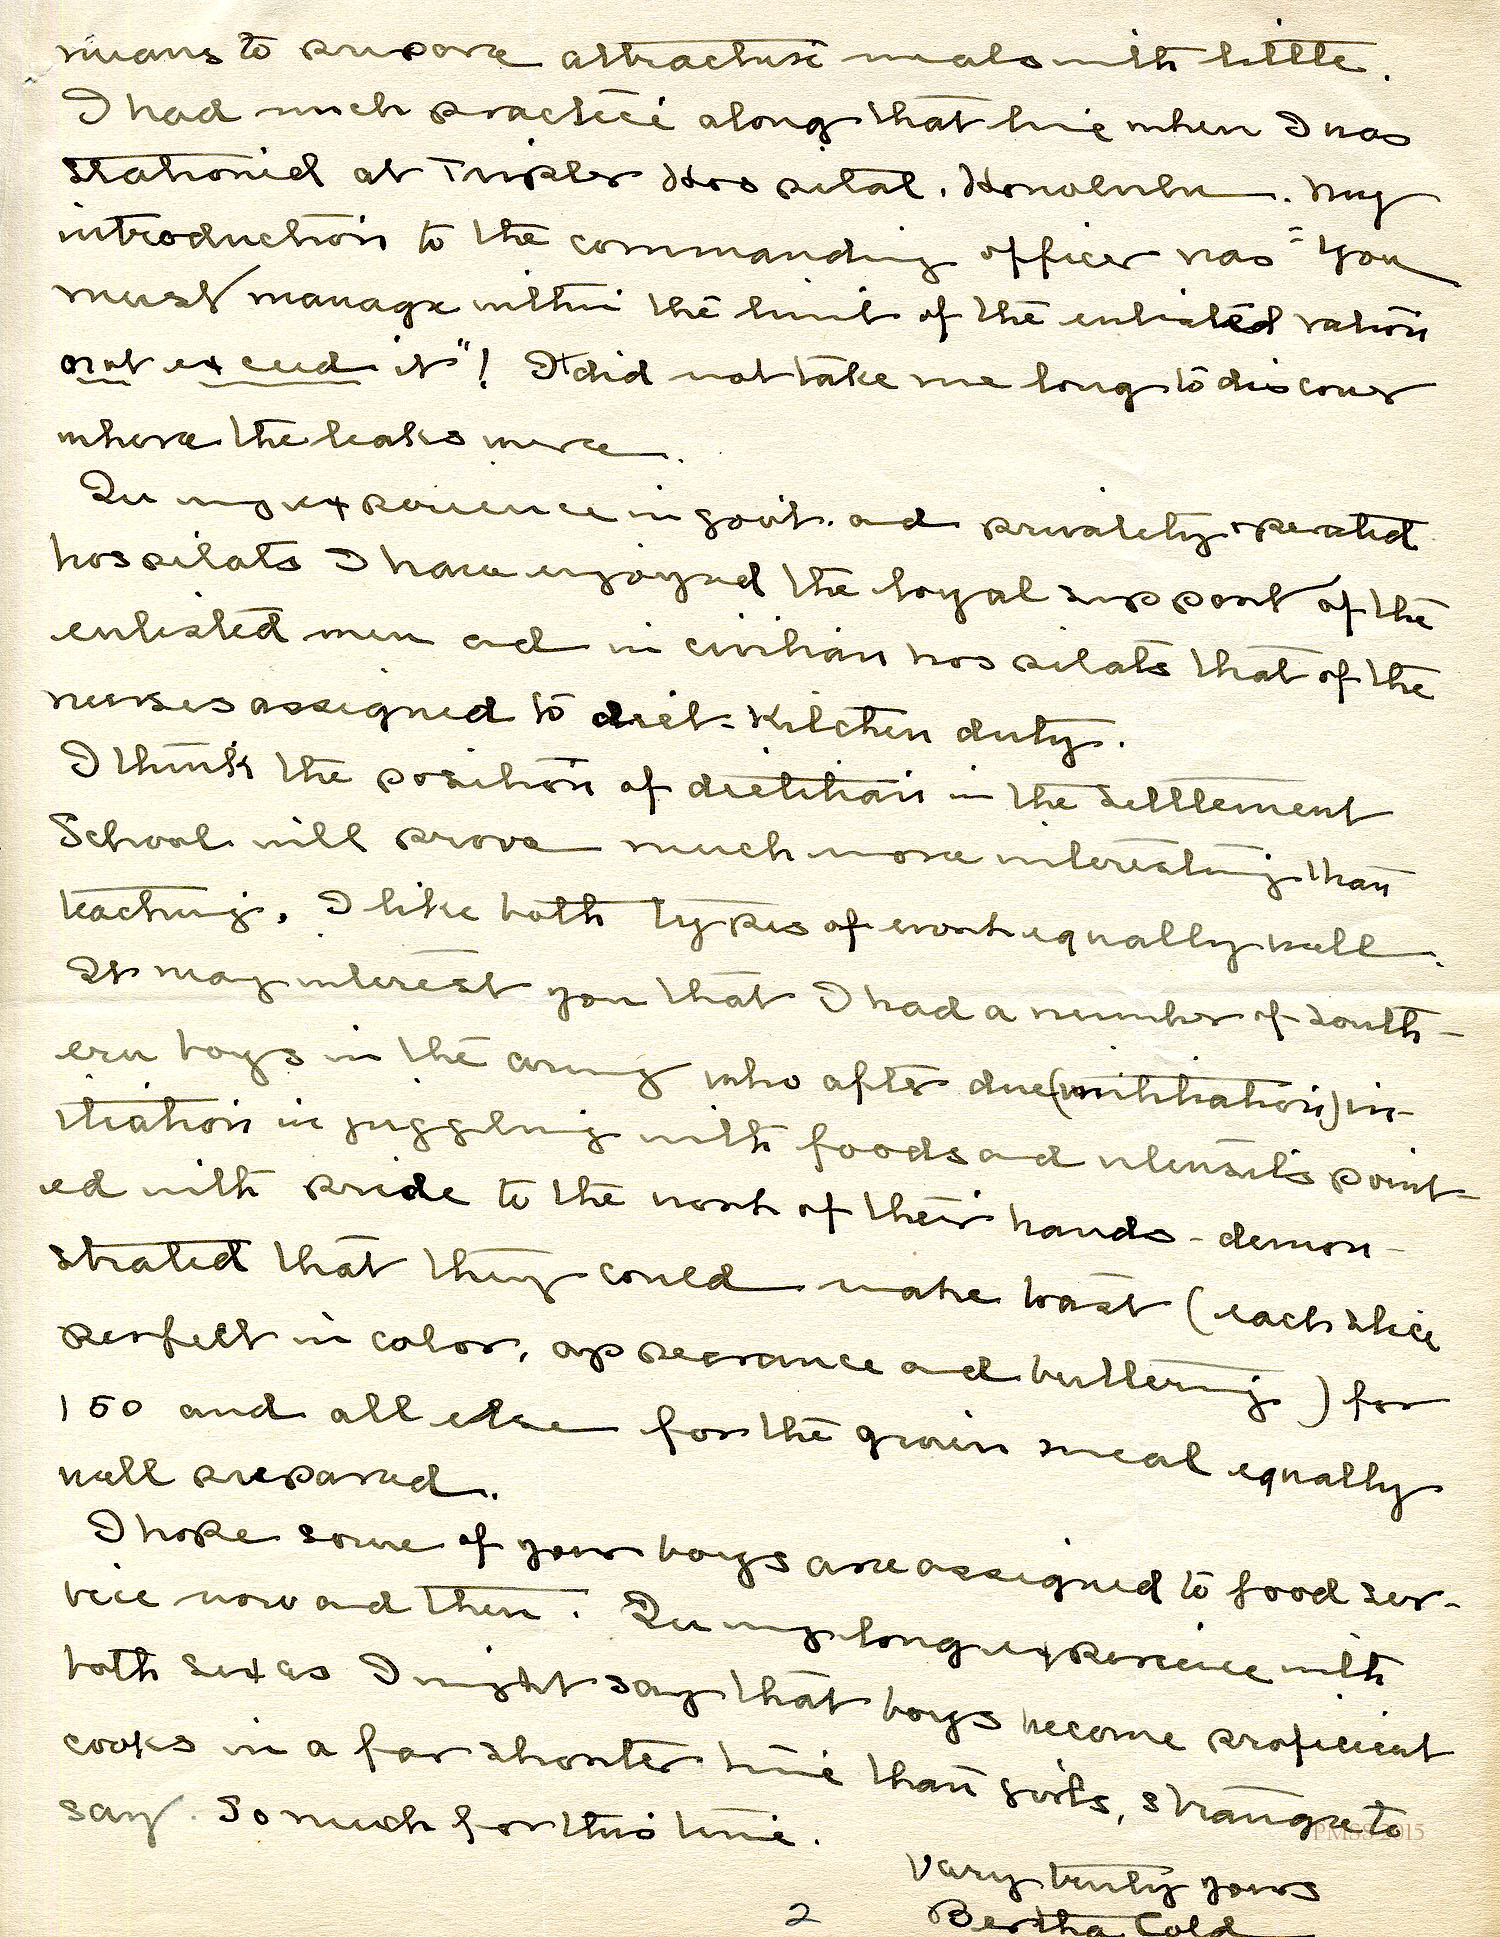 means to prepare attractive meals with little.
I had much practice along that line when I was
stationed at Tripler Hospital, Honolulu. My
introduction to the commanding officer was "You
must manage within the limit of the enlisted ration
not exceed it"! It did not take me long to discover
where the leaks were.
In my experience in govt. and privately operated
hospitals I have enjoyed the loyal support of the
enlisted men and in civilian hospitals that of the
nurses assigned to diet-kitchen duty.
I think the position of dietitian in the Settlement
School will prove much more interesting than
teaching. I like both types of work equally well.
It may interest you that I had a number of south-
ern boys in the army who after due (initiation) in-
itiation in juggling with foods and utensils point-
ed with pride to the work of their hands - demon-
strated that they could make toast (each slice
perfect in color, appearance and buttering) for
150 and all else for the given meal equally
well prepared.
I hope some of your boys are assigned to food ser-
vice now and then. In my long experience with
both sexes I might say that boys become proficient
cooks in a far shorter time than girls, strange to
say. So much for this time.
PMSS 2015
Very truly yours
2 Bertha Cold